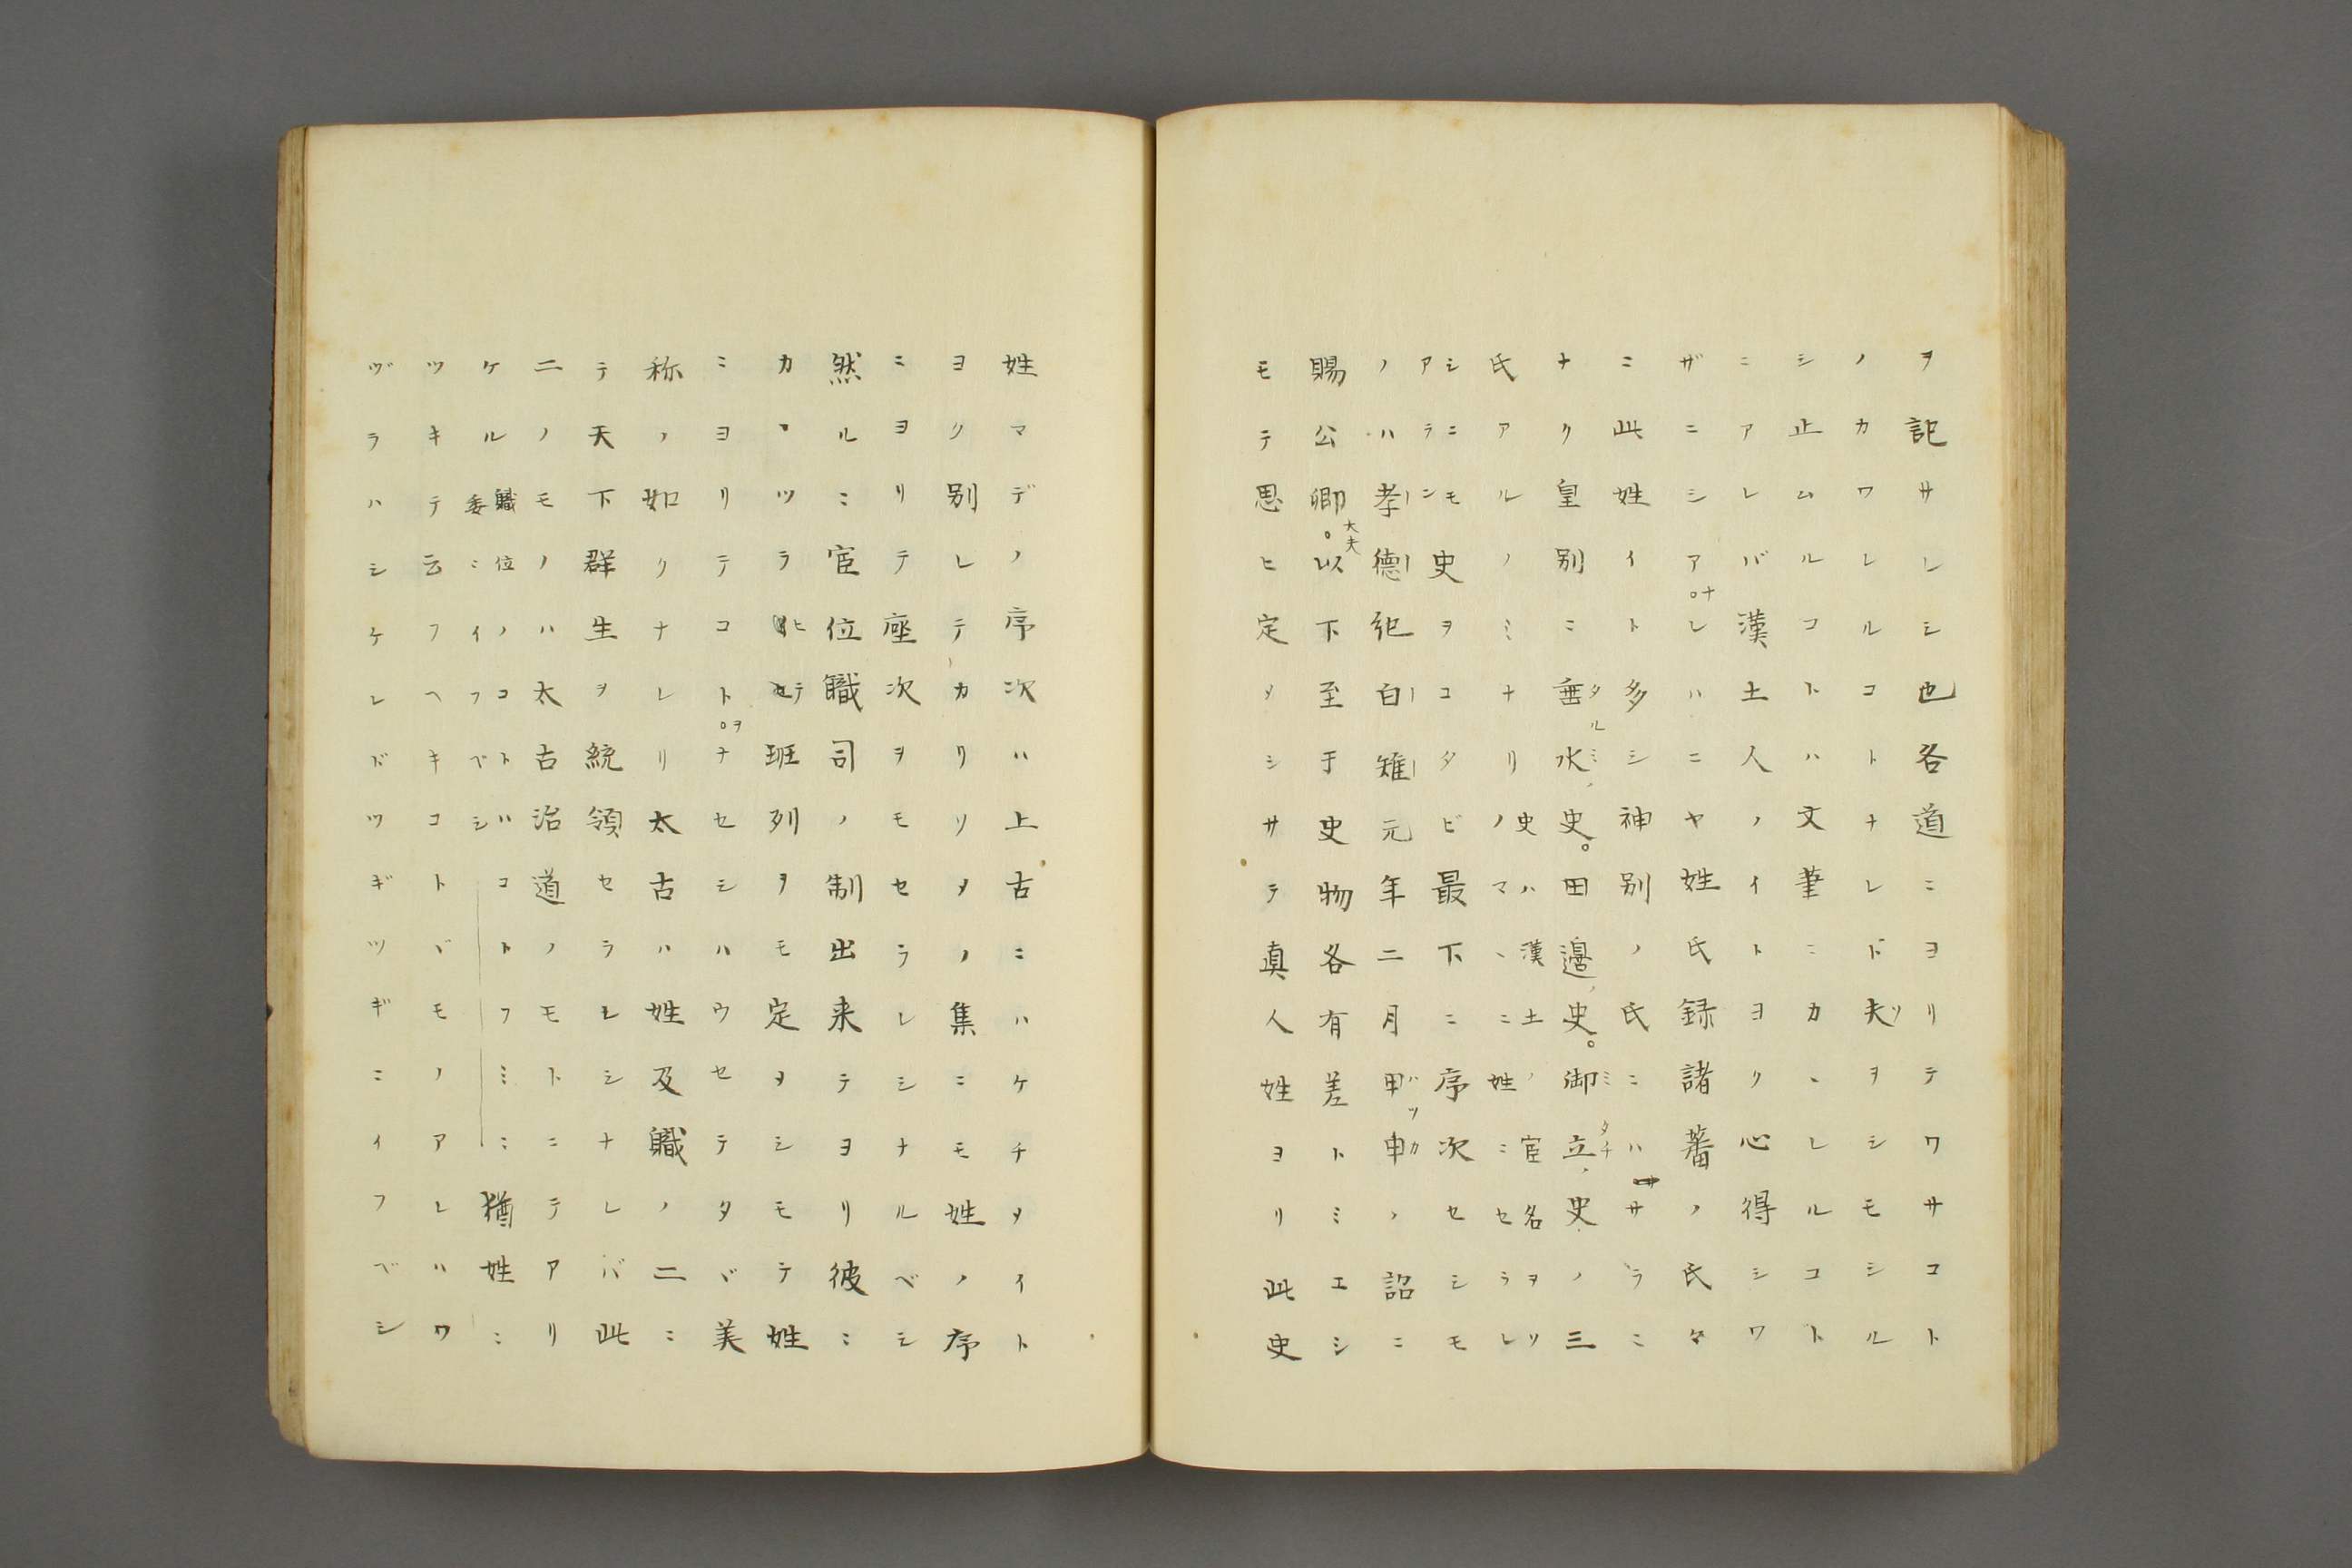 ヲ記サレシ也各道ニヨリテワサコト
ノカワレルコトナレド夫ヲシモシルシ
止ムルコトハ文筆ニカヽレルコト
ニアレバ漢土人ノイトヨク心得シワ
ザニシアナレハニヤ姓氏録諸蕃ノ氏々
ニ此姓イト多シ神別ノ氏ニハサラニ
ナク皇別ニ垂水史。田邉史。御立史ノ三
タルミ
ミタチ
氏アルノミナリ史ハ漢土ノ官名ヲソノマヽニ姓ニセラレ
シニモアラン史ヲコタビ最下ニ序次セシモ
ノハ孝徳紀白雉元年二月甲申ノ詔ニ
賜公卿。大夫以下至于史物各有差トミエシ
モテ思ヒ定メシサテ真人姓ヨリ此史
姓マデノ序次ハ上古ニハケチメイト
ヨク別レテカリソメノ集ニモ姓ノ序
ニヨリテ座次ヲモセラレシナルベシ
然ルニ官位職司ノ制出来テヨリ彼ニ
カヽヅラヒテ班列ヲモ定メシモテ姓
ニヨリテコトヲナセシハウセテタヾ美
称ノ如クナレリ太古ハ姓及職ノ二ニ
テ天下群生ヲ統領セラレシナレバ此
二ノモノハ太古治道ノモトニテアリ
ケル職位ノコトハ委ニイフベシコトフミニ猶姓ニ
ツキテ云フヘキコトヾモノアレハワ
ヅラハシケレドツギツギニイフベシ